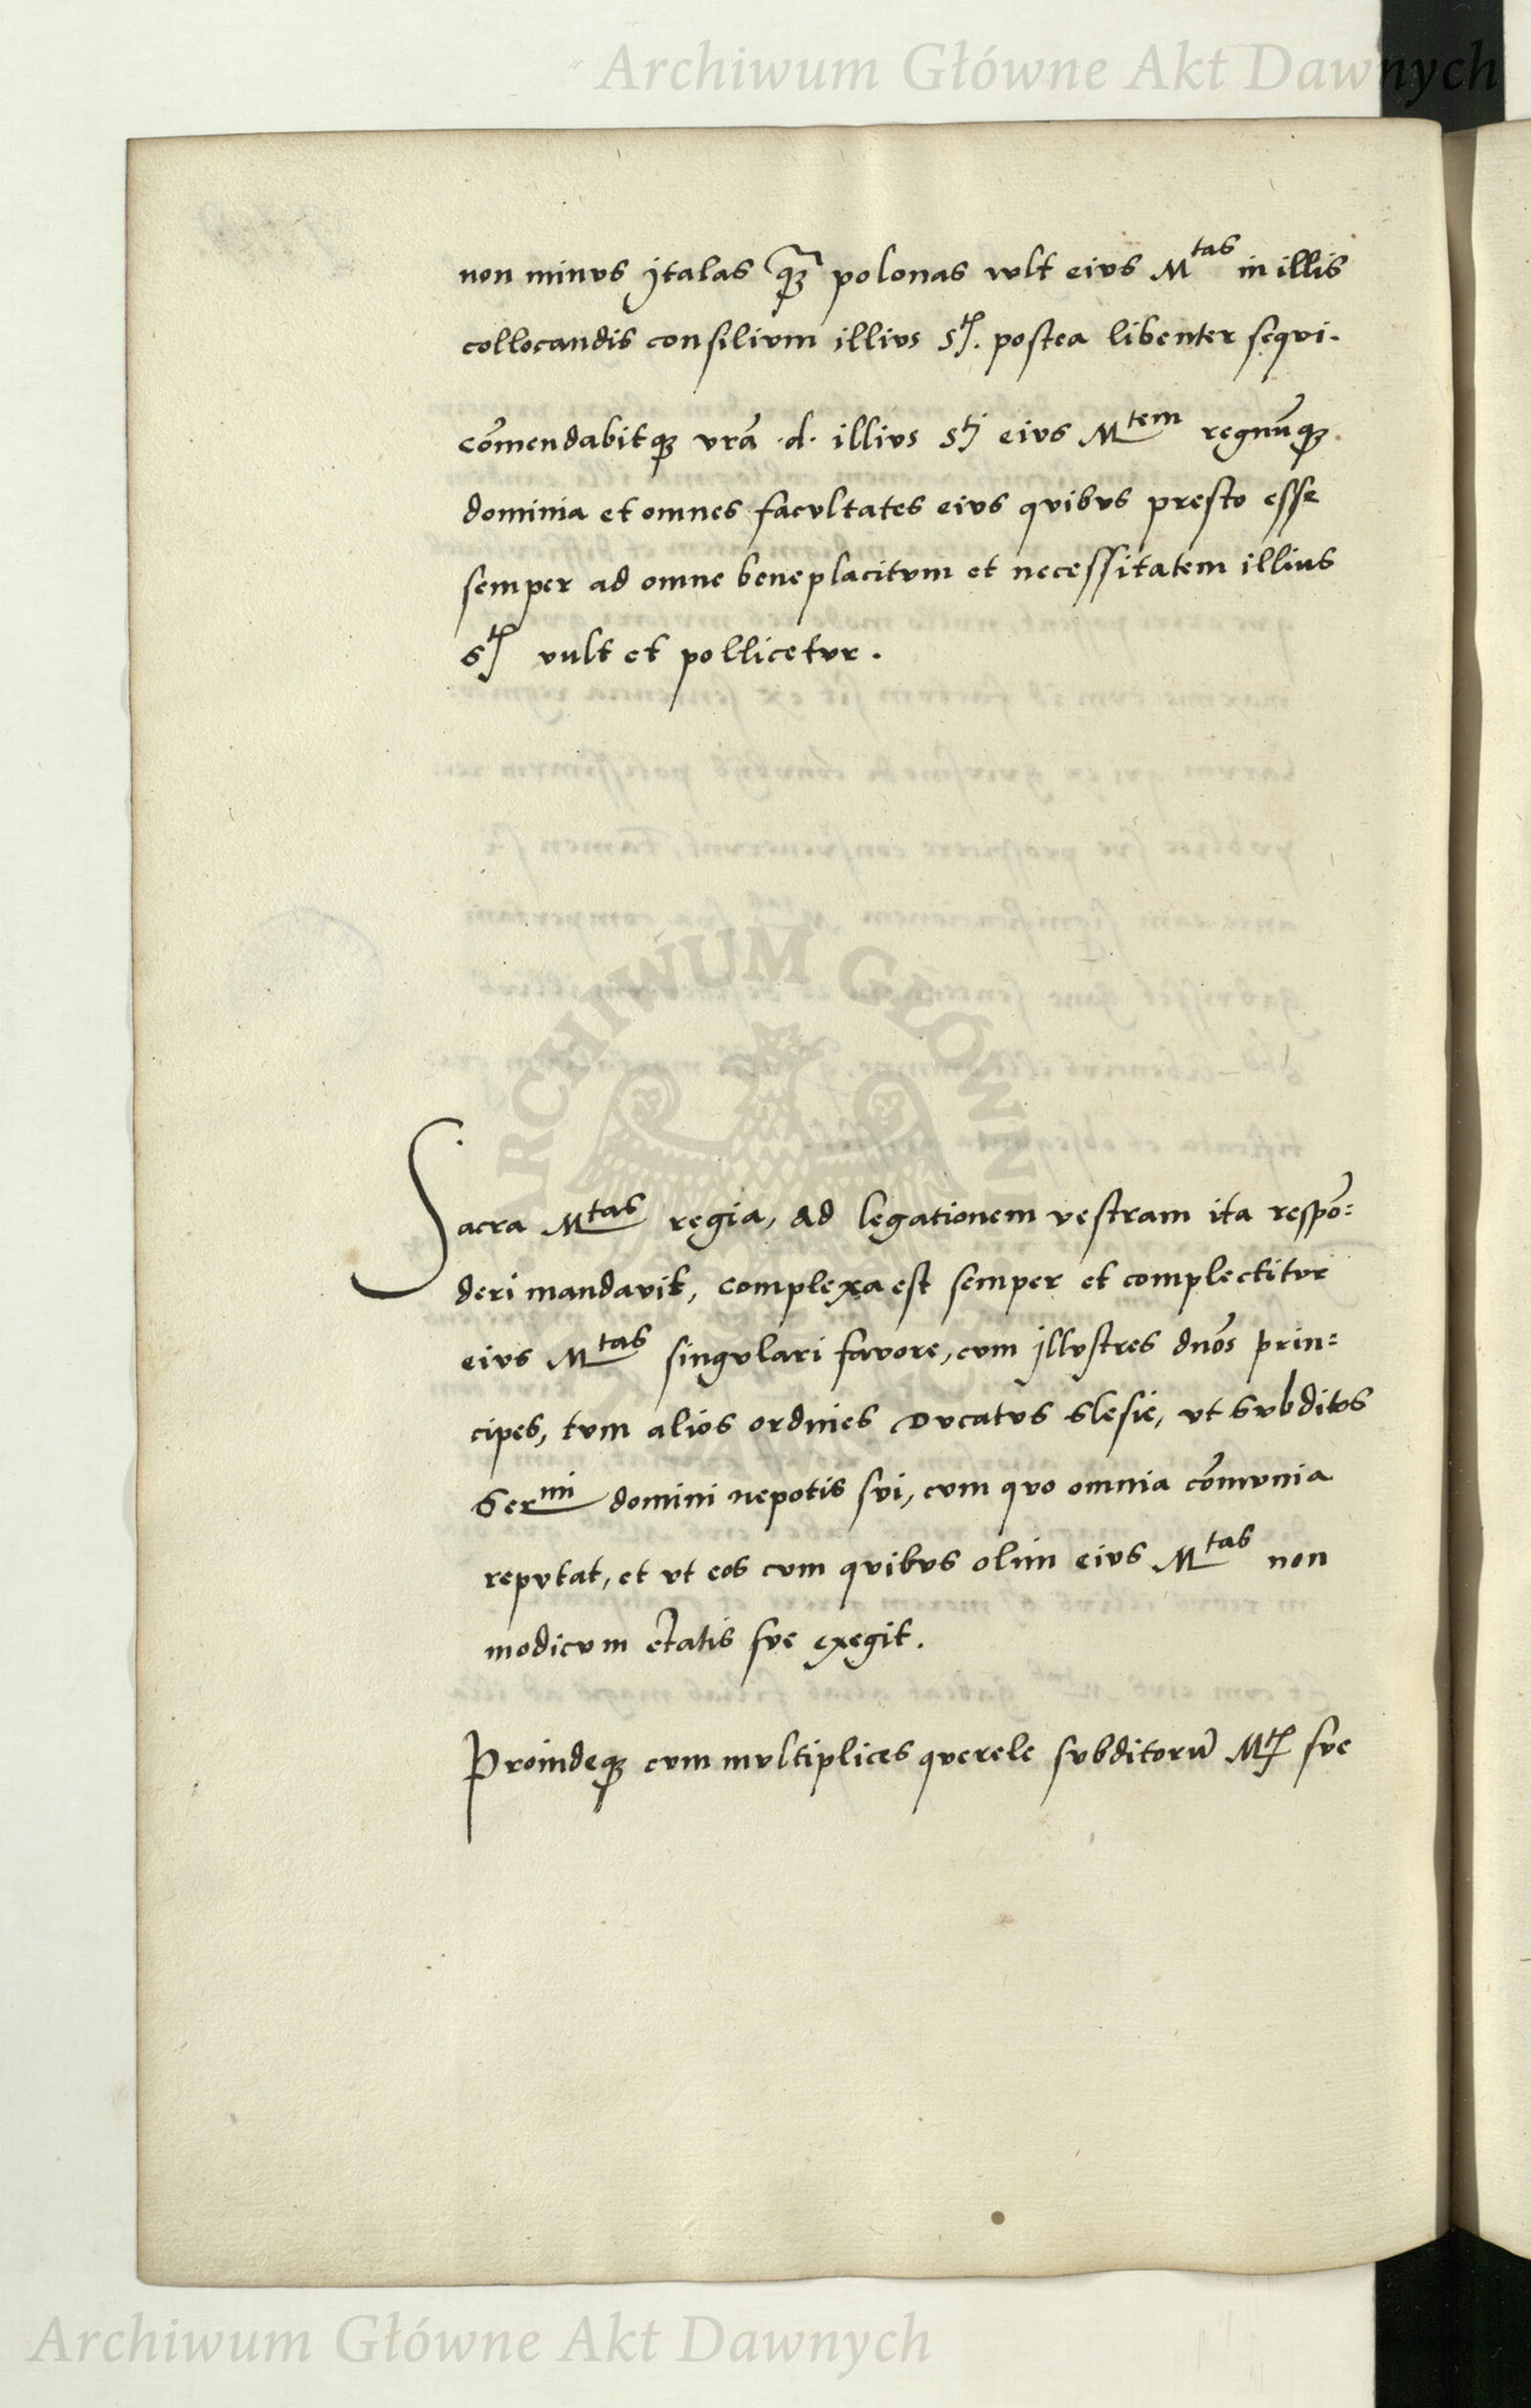 Archiwum Główne Akt Dawnych
non minus jtalas q̃ȝ polonas vult eius M^tas in illis
collocandis consilium illius S^tj. postea libenter sequi.
cõmendabitqȝ vrã .d. illius S^tj eius M^tem regnũqȝ
dominia et omnes facultates eius quibus presto esse
semper ad omne beneplacitum et necessitatem illius
S^tj vult et pollicetur.
ARCHIWUM GŁÓWNE AKT DAWNYCH
Sacra M^tas regia, ad legationem vestram ita respõ=
deri mandavit, complexa est semper et complectitur
eius M^tas singulari favore, cum jllustres dnõs prin=
cipes, tum alios ordines Ducatus Slesie, ut Subditos
Ser^mi domini nepotis sui, cum quo omnia cõmunia
reputat, et ut eos cum quibus olim eius M^tas non
modicum etatis sue exegit.
Proindeqȝ cum multiplices querele subditorũ M^tj sue
Archiwum Główne Akt Dawnych